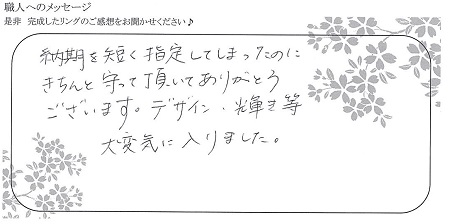 職人へのメッセージ
是非 完成したリングのご感想をお聞かせください♪
納期を短く指定してしまったのに
きちんと守って頂いてありがとう
ございます。デザイン・輝き等
大変気に入りました。